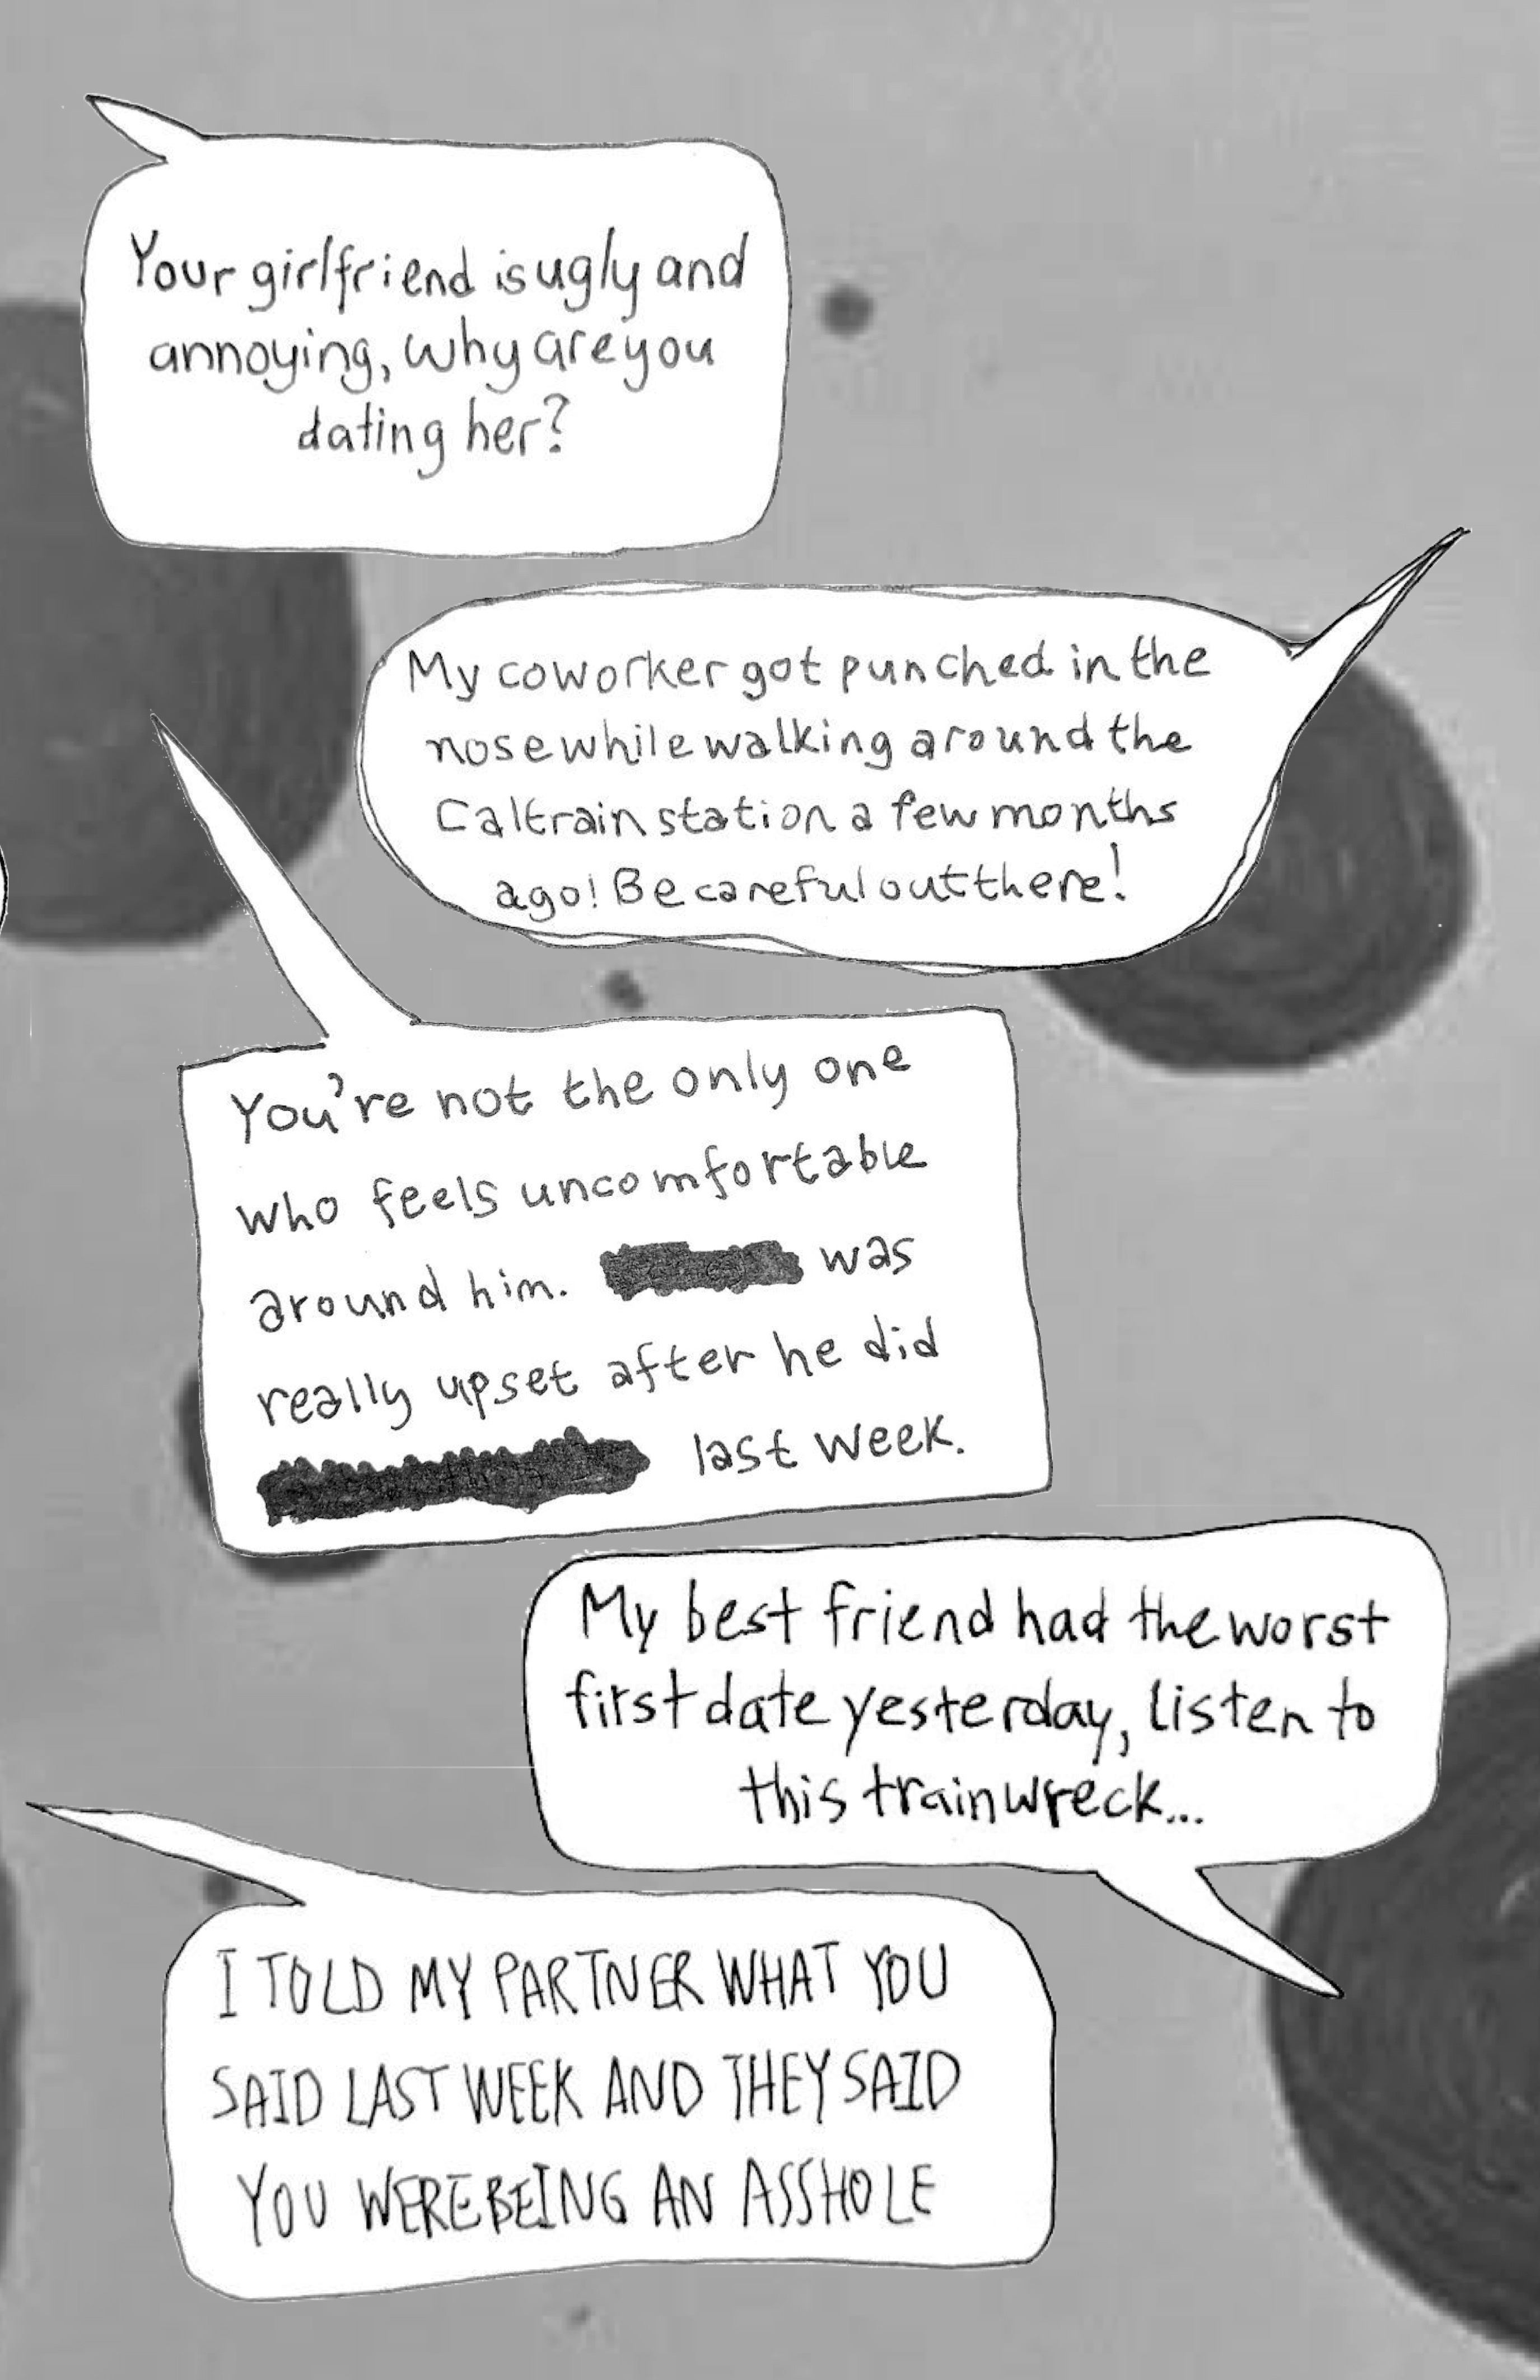 Your girlfriend is ugly and
annoying, why are you
dating her?
My coworker got punched in the
nose while walking around the
Caltrain station a few months
ago! Be careful out there!
You're not the only one
who feels uncomfortable
around him. was
really upset after he did
last week.
My best friend had the worst
first date yesterday, listen to
this trainwreck...
I TOLD MY PARTNER WHAT YOU
SAID LAST WEEK AND THEY SAID
YOU WERE BEING AN ASSHOLE